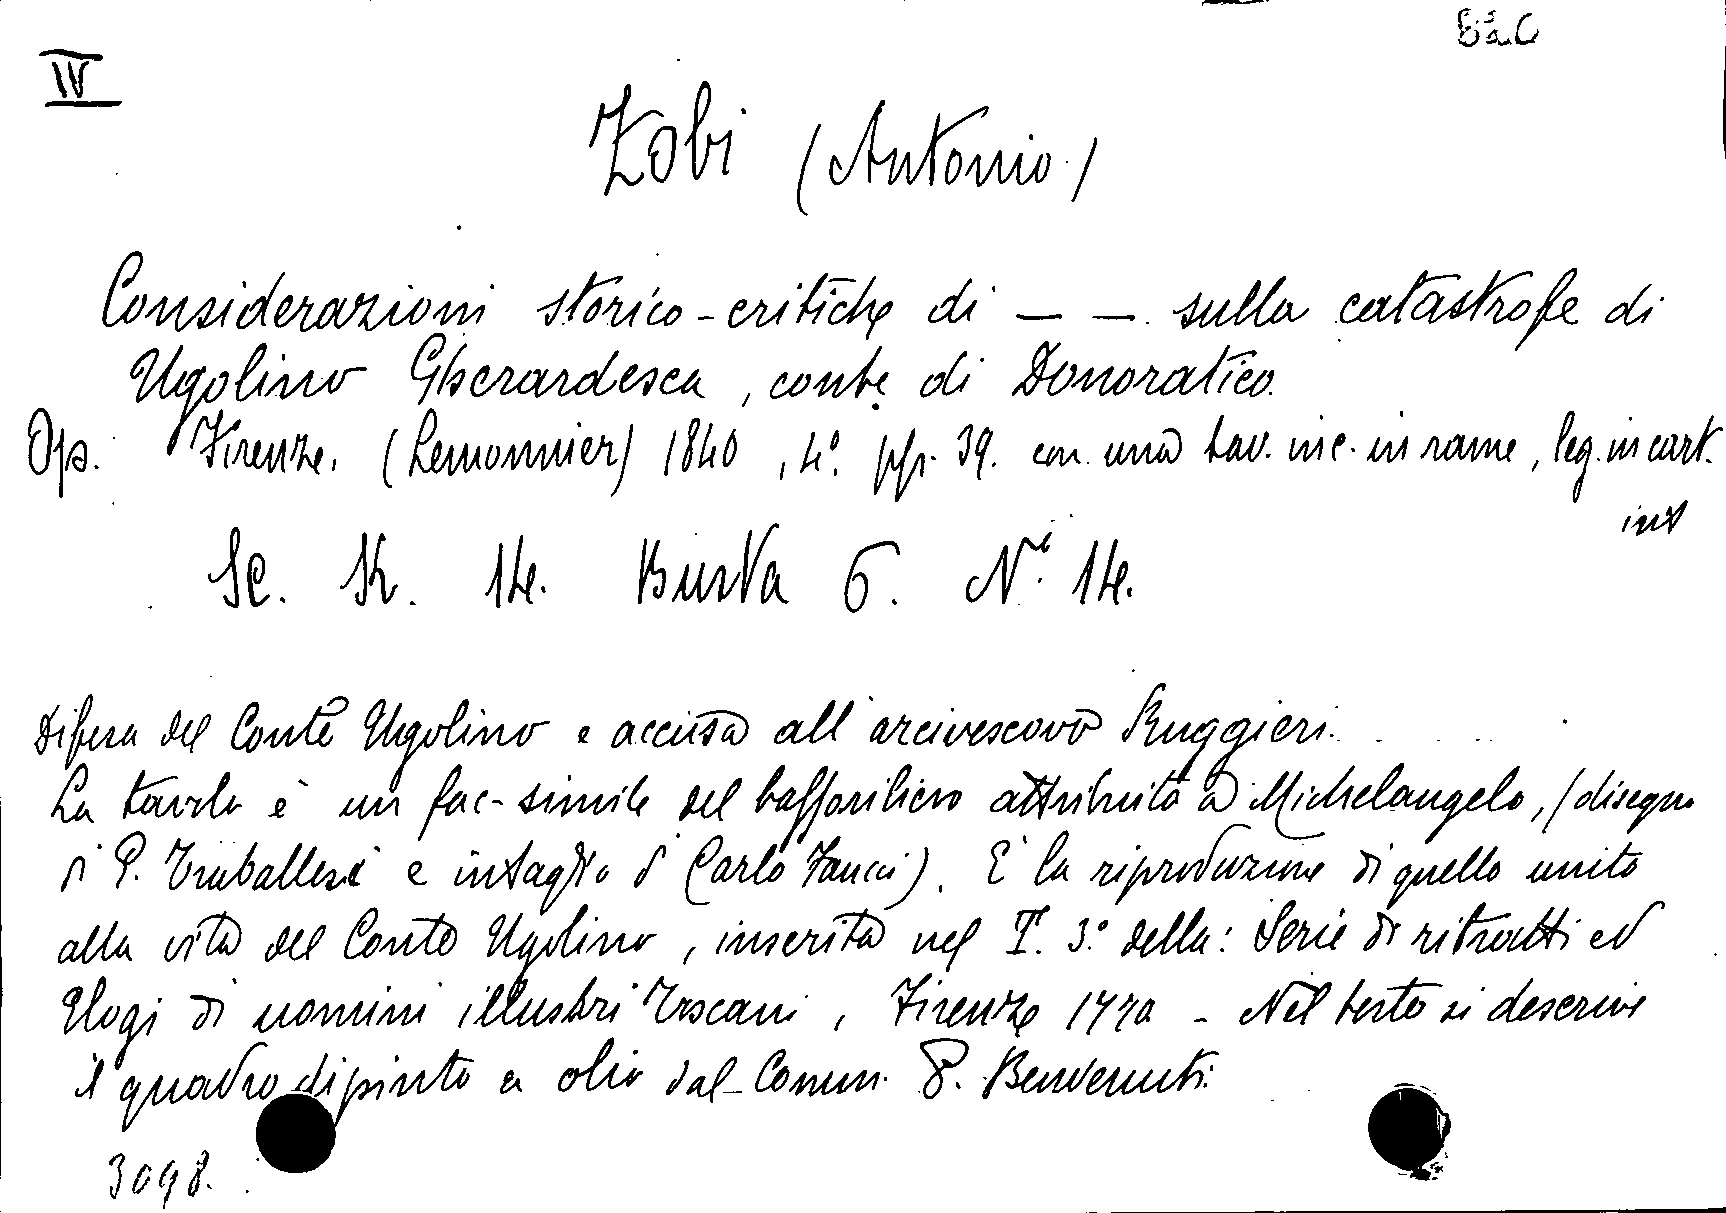 IV
Zobi (Antonio)
Considerazioni storico-critiche di — — sulla catastrofe di
Ugolino Gherardesca, conte di Donoratico.
Op. Firenze. (Lemonnier) 1840, 4º. pp. 39. con una tav. inc. in rame, leg. in cart.
int
Sc. K. 14. Busta 6. Nº 14.
Difesa del Conte Ugolino e accusa all'arcivescovo Ruggieri.
La tavola è un fac-simile del bassorilievo attribuito a Michelangelo, (disegno
di P. Traballesi e intaglio di Carlo Faucci). È la riproduzione di quello unito
alla vita del Conte Ugolino, inserita nel T. 3.º della: Serie di ritratti ed
Elogi di uomini illustri Toscani, Firenze 1770 - Nel testo si descrive
il quadro dipinto a olio dal Comm. P. Benvenuti.
3098.